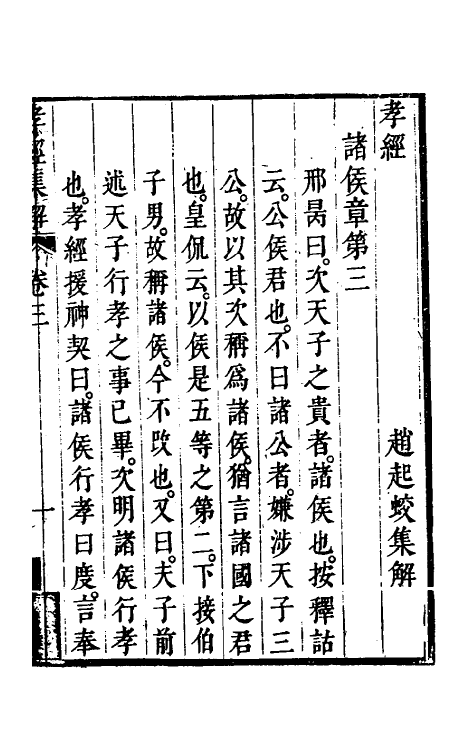 孝經　趙起蛟集解
諸侯章第三
邢昺曰。次天子之貴者。諸侯也。按釋詁
云。公侯君也。不曰諸公者。嫌涉天子三
公。故以其次稱爲諸侯。猶言諸國之君
也。皇侃云。以侯是五等之第二。下接伯
子男。故稱諸侯。今不改也。又曰。夫子前
述天子行孝之事已畢。次明諸侯行孝
也。孝經援神契曰。諸侯行孝曰度。言奉
孝經集解 卷三 一